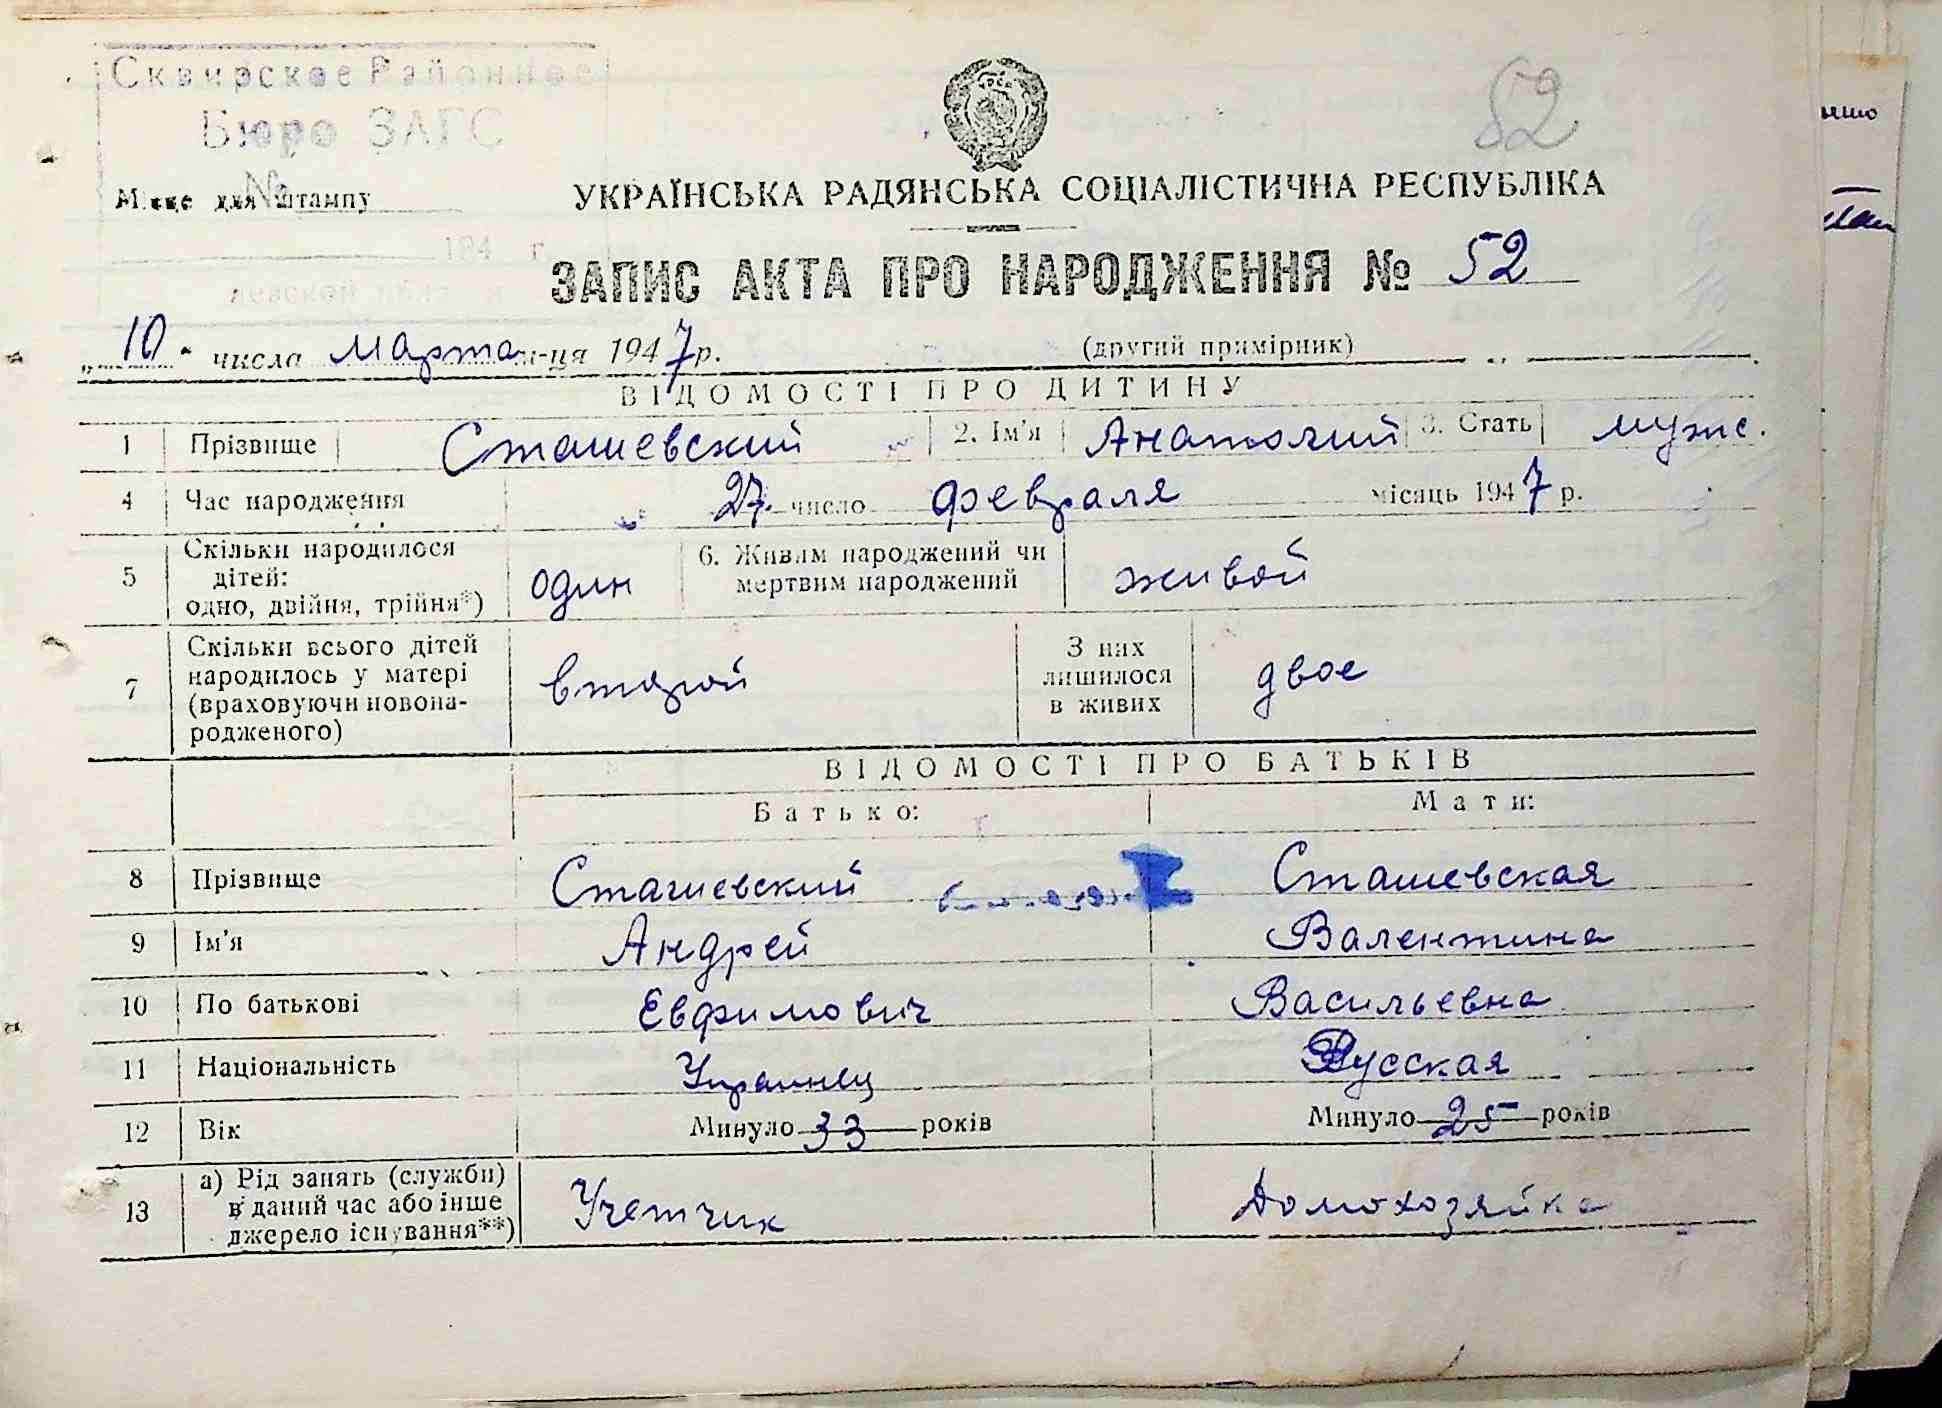 Сквирское Районное
Бюро ЗАГС
№
Місце для штампу
194 г.
52
УКРАЇНСЬКА РАДЯНСЬКА СОЦІАЛІСТИЧНА РЕСПУБЛІКА
ЗАПИС АКТА ПРО НАРОДЖЕННЯ № 52
„10" числа марта м-ця 1947 р. (другий примірник)
ВІДОМОСТІ ПРО ДИТИНУ
1 Прізвище Сташевский 2. Ім'я Анатолий 3. Стать муж.
4 Час народження 27. число февраля місяць 1947 р.
5 Скільки народилося дітей: одно, двійня, трійня*) один 6. Живим народжений чи мертвим народжений живой
7 Скільки всього дітей народилось у матері (враховуючи новонародженого) второй З них лишилося в живих двое
ВІДОМОСТІ ПРО БАТЬКІВ
Батько: Мати:
8 Прізвище Сташевский Сташевская
9 Ім'я Андрей Валентина
10 По батькові Евфимович Васильевна
11 Національність Украинец Русская
12 Вік Минуло 33 років Минуло 25 років
13 а) Рід занять (служби) в даний час або інше джерело існування**) Учетчик Домохозяйка